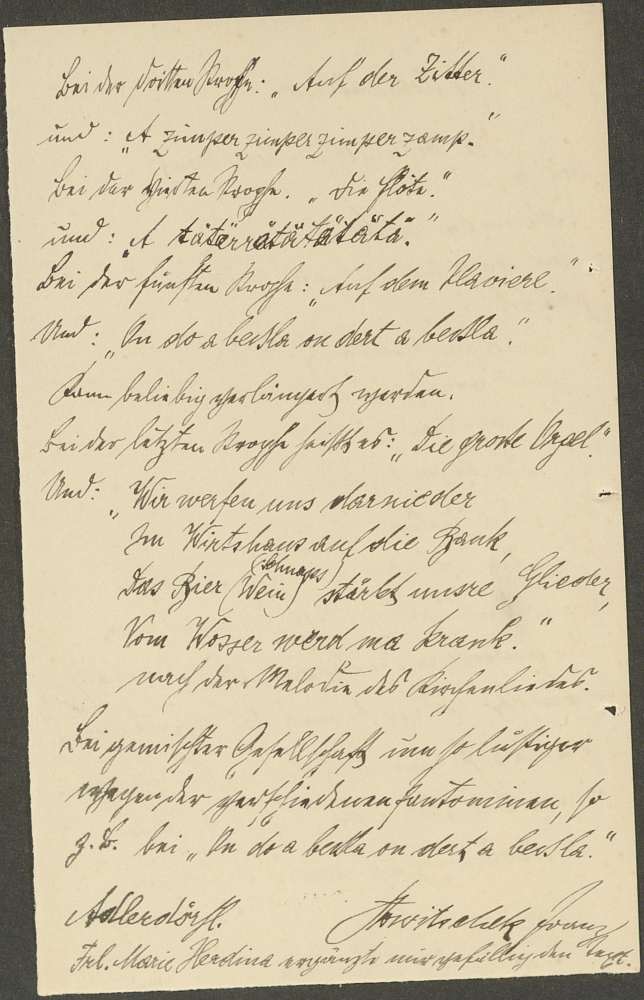 Bei der dritten Strophe: „Auf der Zitter.“
und: „A zimper zimper zimper zamp.“
Bei der vierten Strophe. „Die Flöte.“
und: „A täterrätätätätä.“
Bei der fünften Strophe: „Auf dem Klaviere.“
Und: „On do a beckla on dert a beckla.“
Kann beliebig verlängert werden.
Bei der letzten Strophe heißt es: „Die große Orgel.“
Und: „Wir werfen uns darnieder
Im Wirtshaus auf die Bank,
(Schnaps)
Das Bier (Wein) stärkt unsre Glieder,
Vom Wosser werd ma krank.“
nach der Melodie des Kirchenliedes.
Bei gemischter Gesellschaft um so lustiger
wegen der verschiedenen Pantominen, so
z. B. bei „On do a beckla on dert a beckla.“
Adlerdörfl. Howitschek Franz
Frl. Marie Herdina ergänzte mir gefällig den Text.